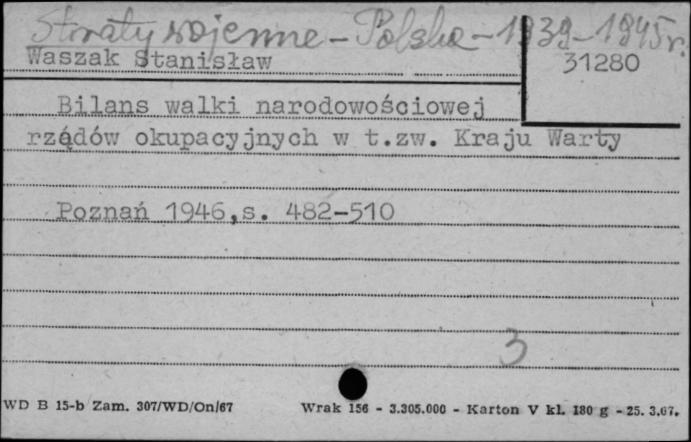 Straty wojenne - Polska - 1939-1945 r.
Waszak Stanisław
31280
Bilans walki narodowościowej
rządów okupacyjnych w t.zw. Kraju Warty
Poznań 1946,s. 482-510
3
WD B 15-b Zam. 307/WD/On/67
Wrak 156 - 3.305.000 - Karton V kl. 180 g - 25. 3.67.